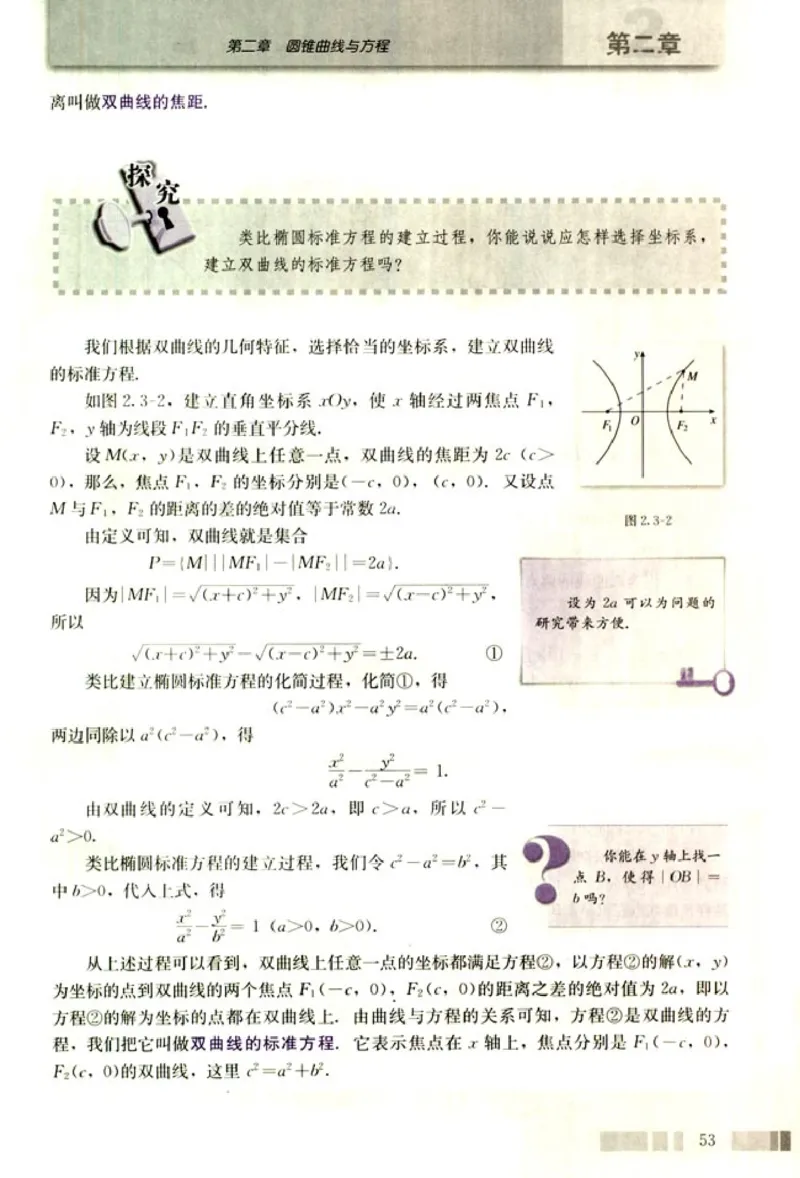 第二章 圆锥曲线与方程
第二章
离叫做双曲线的焦距.
探究
类比椭圆标准方程的建立过程，你能说说应怎样选择坐标系，
建立双曲线的标准方程吗？
我们根据双曲线的几何特征，选择恰当的坐标系，建立双曲线
的标准方程.
如图 2.3-2，建立直角坐标系 xOy，使 x 轴经过两焦点 F₁，
F₂，y 轴为线段 F₁F₂ 的垂直平分线.
设 M(x，y)是双曲线上任意一点，双曲线的焦距为 2c（c>
0)，那么，焦点 F₁，F₂ 的坐标分别是(－c，0)，(c，0). 又设点
M 与 F₁，F₂ 的距离的差的绝对值等于常数 2a.
y
M
F₁ O F₂ x
图 2.3-2
由定义可知，双曲线就是集合
P={M| ||MF₁|－|MF₂||=2a}.
因为|MF₁|=√((x+c)²+y²)，|MF₂|=√((x－c)²+y²)，
所以
√((x+c)²+y²)－√((x－c)²+y²)=±2a. ①
设为 2a 可以为问题的
研究带来方便.
类比建立椭圆标准方程的化简过程，化简①，得
(c²－a²)x²－a²y²=a²(c²－a²)，
两边同除以 a²(c²－a²)，得
x²/a²－y²/(c²－a²)=1.
由双曲线的定义可知，2c>2a，即 c>a，所以 c²－
a²>0.
类比椭圆标准方程的建立过程，我们令 c²－a²=b²，其
中 b>0，代入上式，得
x²/a²－y²/b²=1 (a>0，b>0). ②
你能在 y 轴上找一
点 B，使得|OB|=
b 吗？
从上述过程可以看到，双曲线上任意一点的坐标都满足方程②，以方程②的解(x，y)
为坐标的点到双曲线的两个焦点 F₁(－c，0)，F₂(c，0)的距离之差的绝对值为 2a，即以
方程②的解为坐标的点都在双曲线上. 由曲线与方程的关系可知，方程②是双曲线的方
程，我们把它叫做双曲线的标准方程. 它表示焦点在 x 轴上，焦点分别是 F₁(－c，0)，
F₂(c，0)的双曲线，这里 c²=a²+b².
53